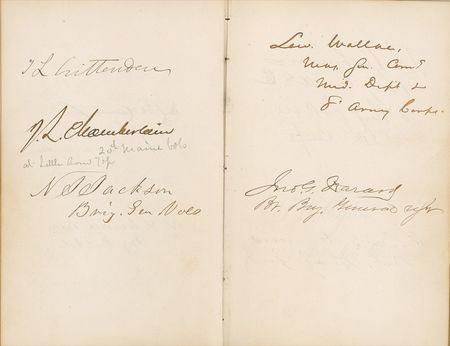 T L Crittenden
J. L. Chamberlain
20th Maine Vols
at Little Round Top
N J Jackson
Brig. Gen Vols
Lew. Wallace,
Maj. Gen. Com'g
Mid. Dept &
8' Army Corps.
Jno. G.
Bv. Brig. General